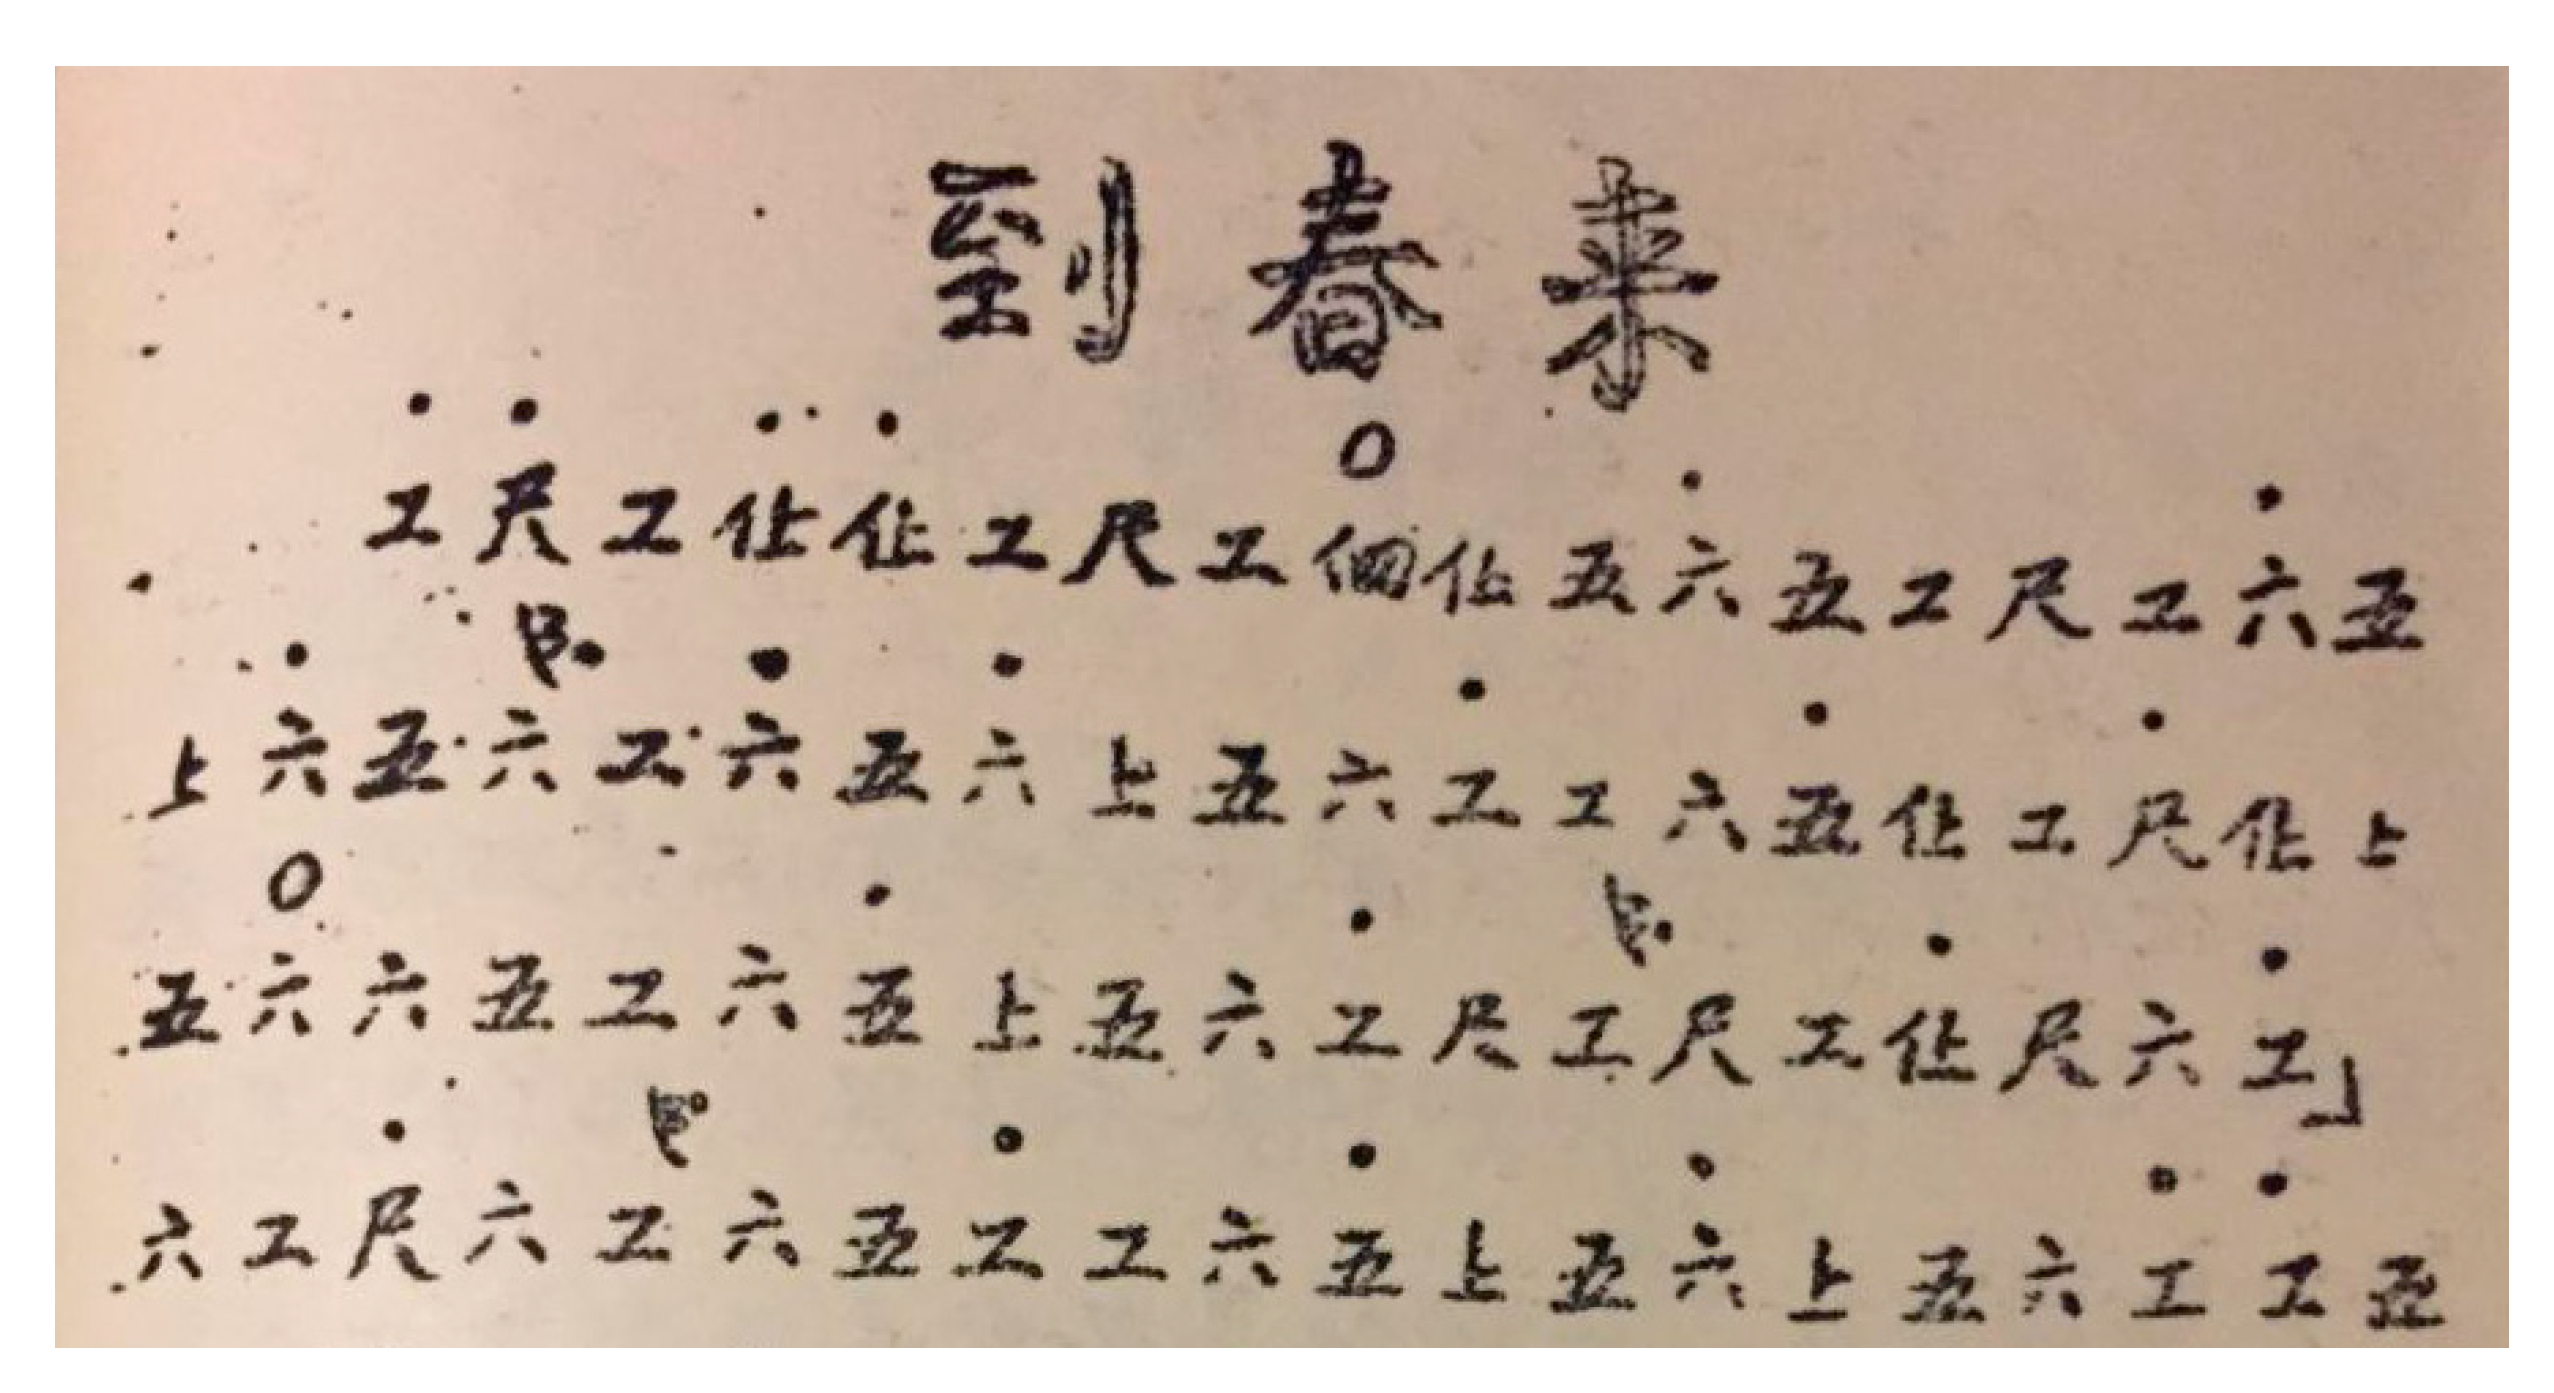 到春来
工尺工仩仩工尺工伬仩五六五工尺工六五
上六五六工六五六上五六工工六五仩工尺仩上
五六六五工六五上五六工尺工尺工仩尺六工」
六工尺六工六五工工六五上五六上五六工工五